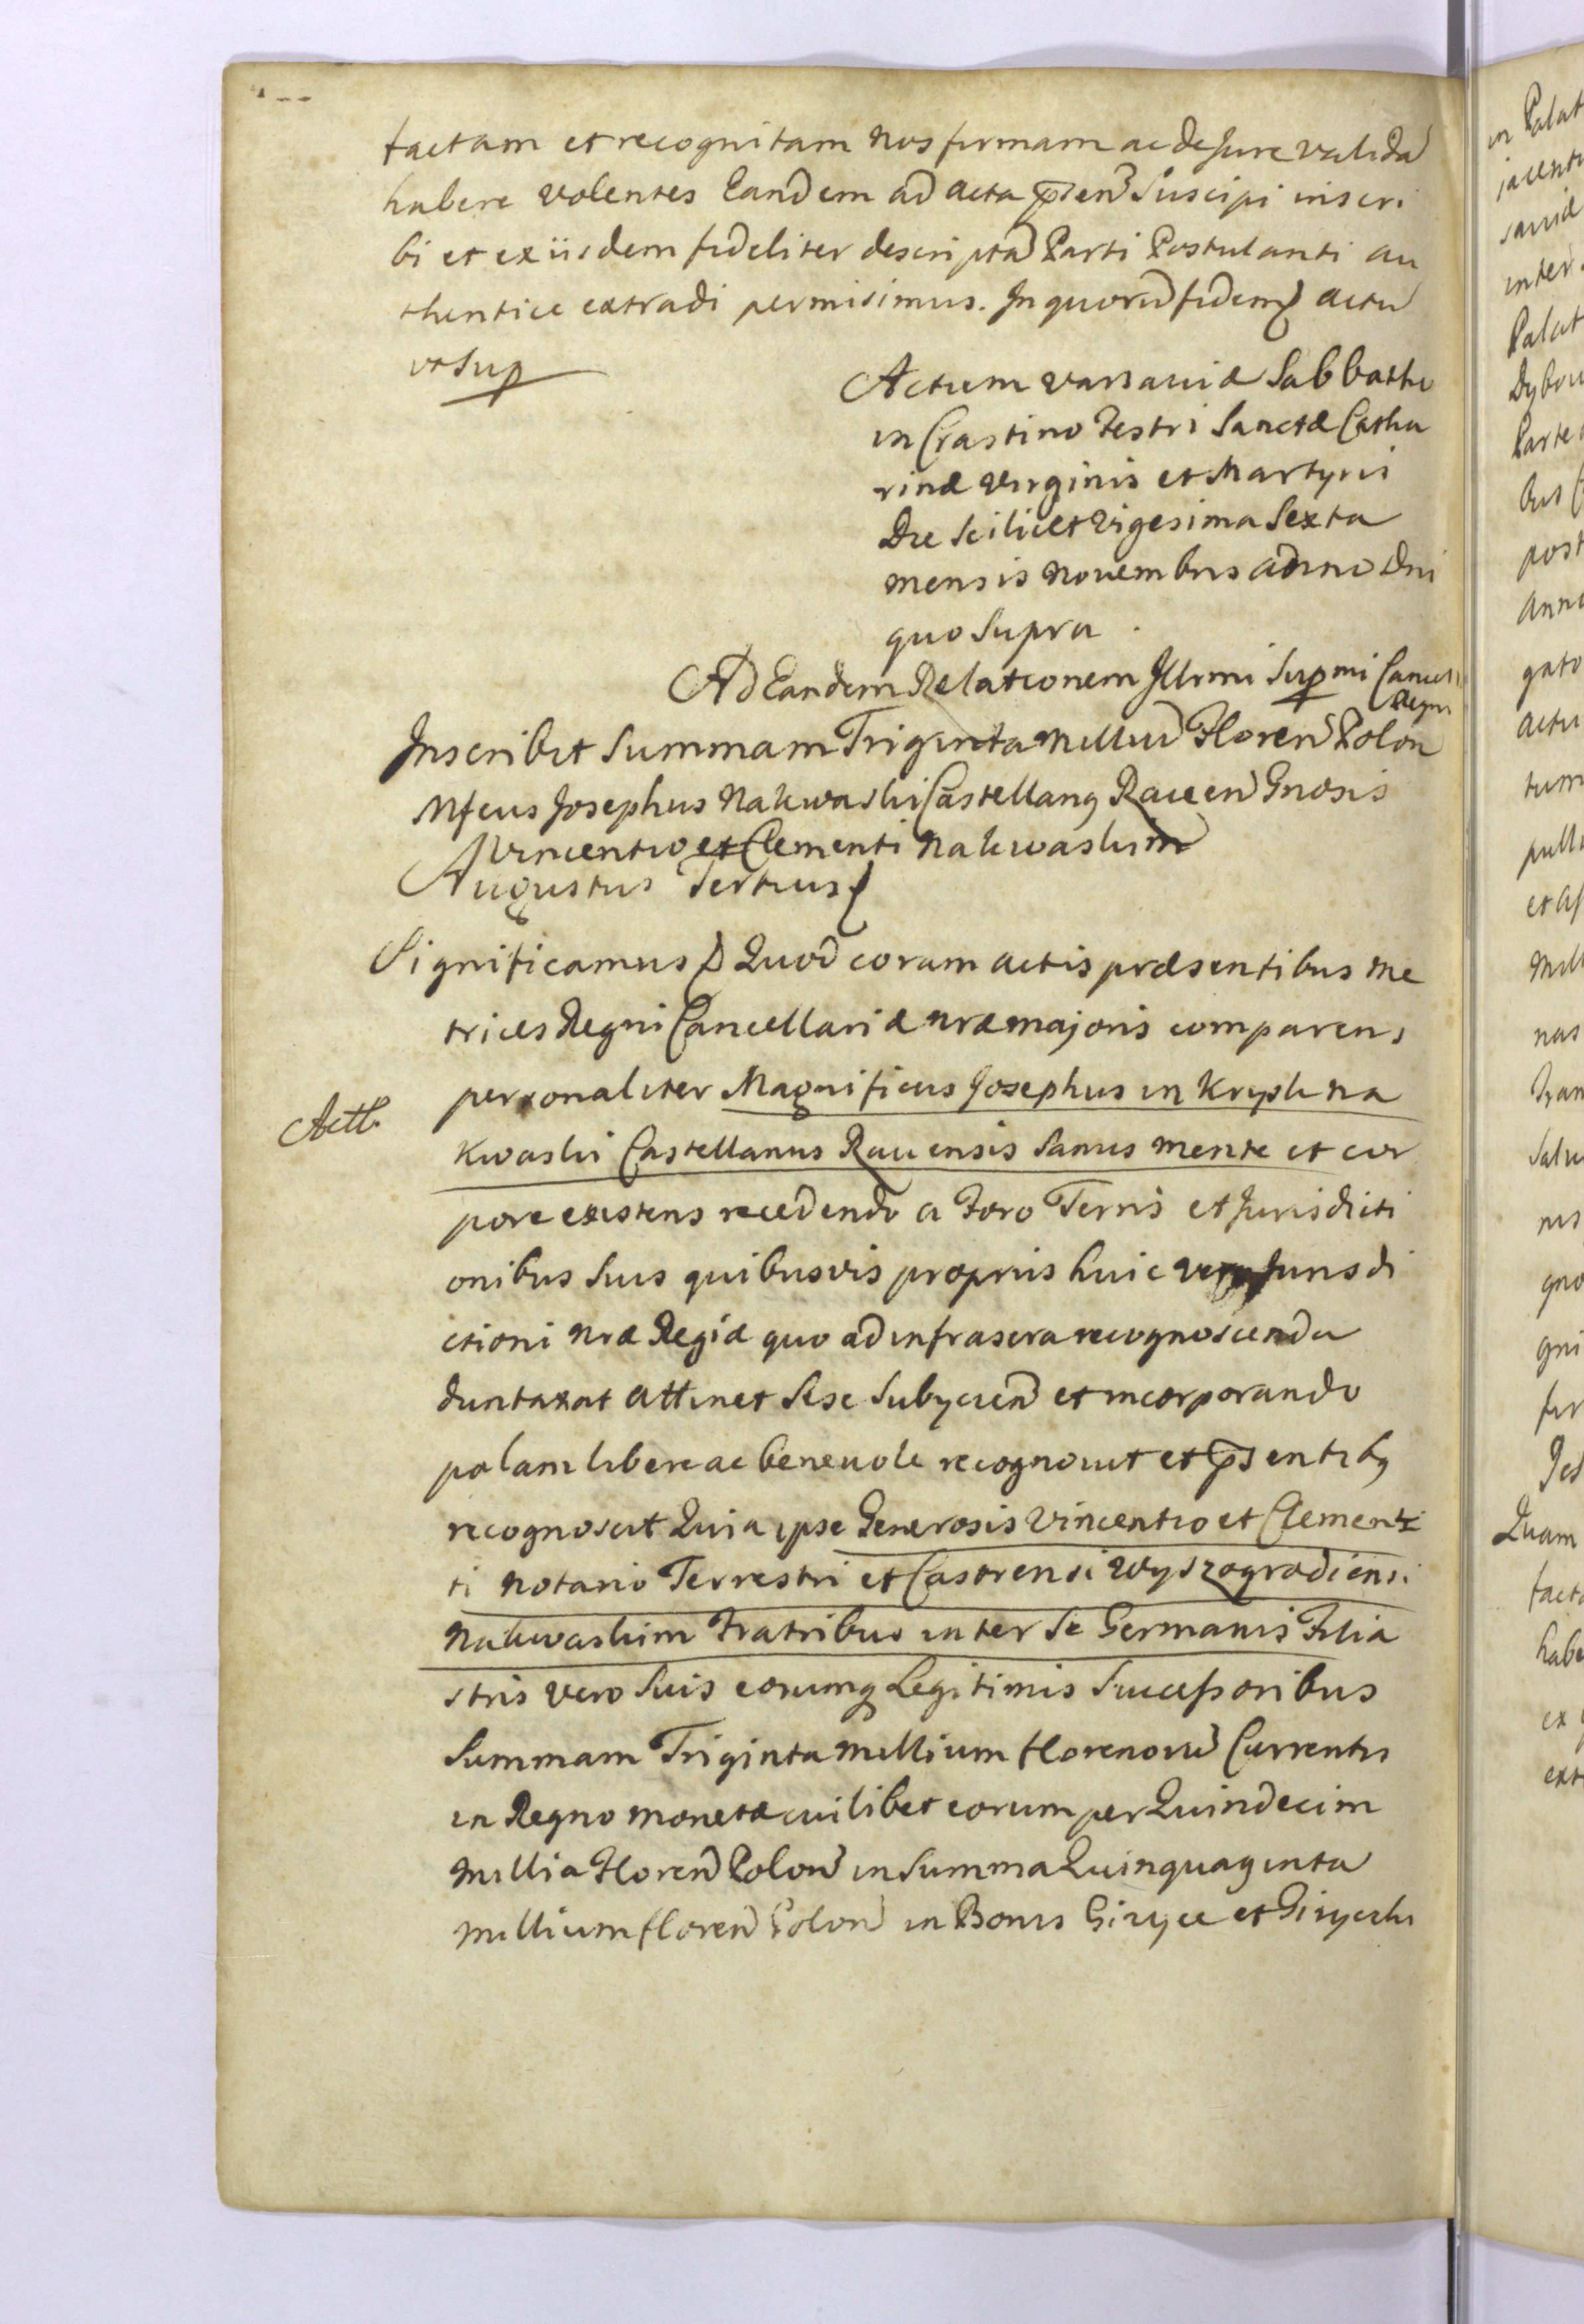 factam et recognitam nos firmam ac de Jure validã
habere volentes Eandem ad acta p̃sen̄ Suscipi inscri
bi et ex iisdem fideliter descriptã Parti Postulanti au
thentice extradi permisimus. In quorũ fidem actũ
ut Sup
Actum Varsaviæ Sabbatho
in Crastino Festi Sanctæ Catha
rinæ Virginis et Martyris
Die Scilicet Vigesima Sexta
mensis Novembris anno Dni
quo Supra.
Ad Eandem Relationem Illrmi Supmi Cancell
Regni
Inscribit Summam Triginta Milliũ Floren̄ Polon
Mfcus Josephus Nakwaski Castellanq Raven̄ Gnosis
Vincentio et Clementi Nakwaskim
Augustus Tertius
Significamus Quod coram actis præsentibus Me
trices Regni Cancellariæ nræ majoris comparens
personaliter Magnificus Josephus in Krysk Na
kwaski Castellanus Ravensis Sanus mente et cor
pore existens recedendo a Foro Terris et Jurisdicti
onibus Suis quibusvis propriis huic vero Jurisdi
ctioni nræ Regiæ quo ad infrascra recognoscenda
duntaxat attinet Sese Subyciend et incorporando
palam libere ac benevole recognovit et p̃sentibq
recognoscit Quia ipse Generosis Vincentio et Clemen
ti Notario Terrestri et Castrensi Wyszogrodiensi
Nakwaskim Fratribus inter Se Germanis Filia
stris vero Suis eorumq Legitimis Successoribus
Summam Triginta Millium florenorũ Currentis
in Regno monetæ cuilibet eorum per Quindecim
Millia Floren̄ Polon̄ in Summa Quinquaginta
Millium floren̄ Polon̄ in Bonis Gizyce et Gizyczki
Actt.